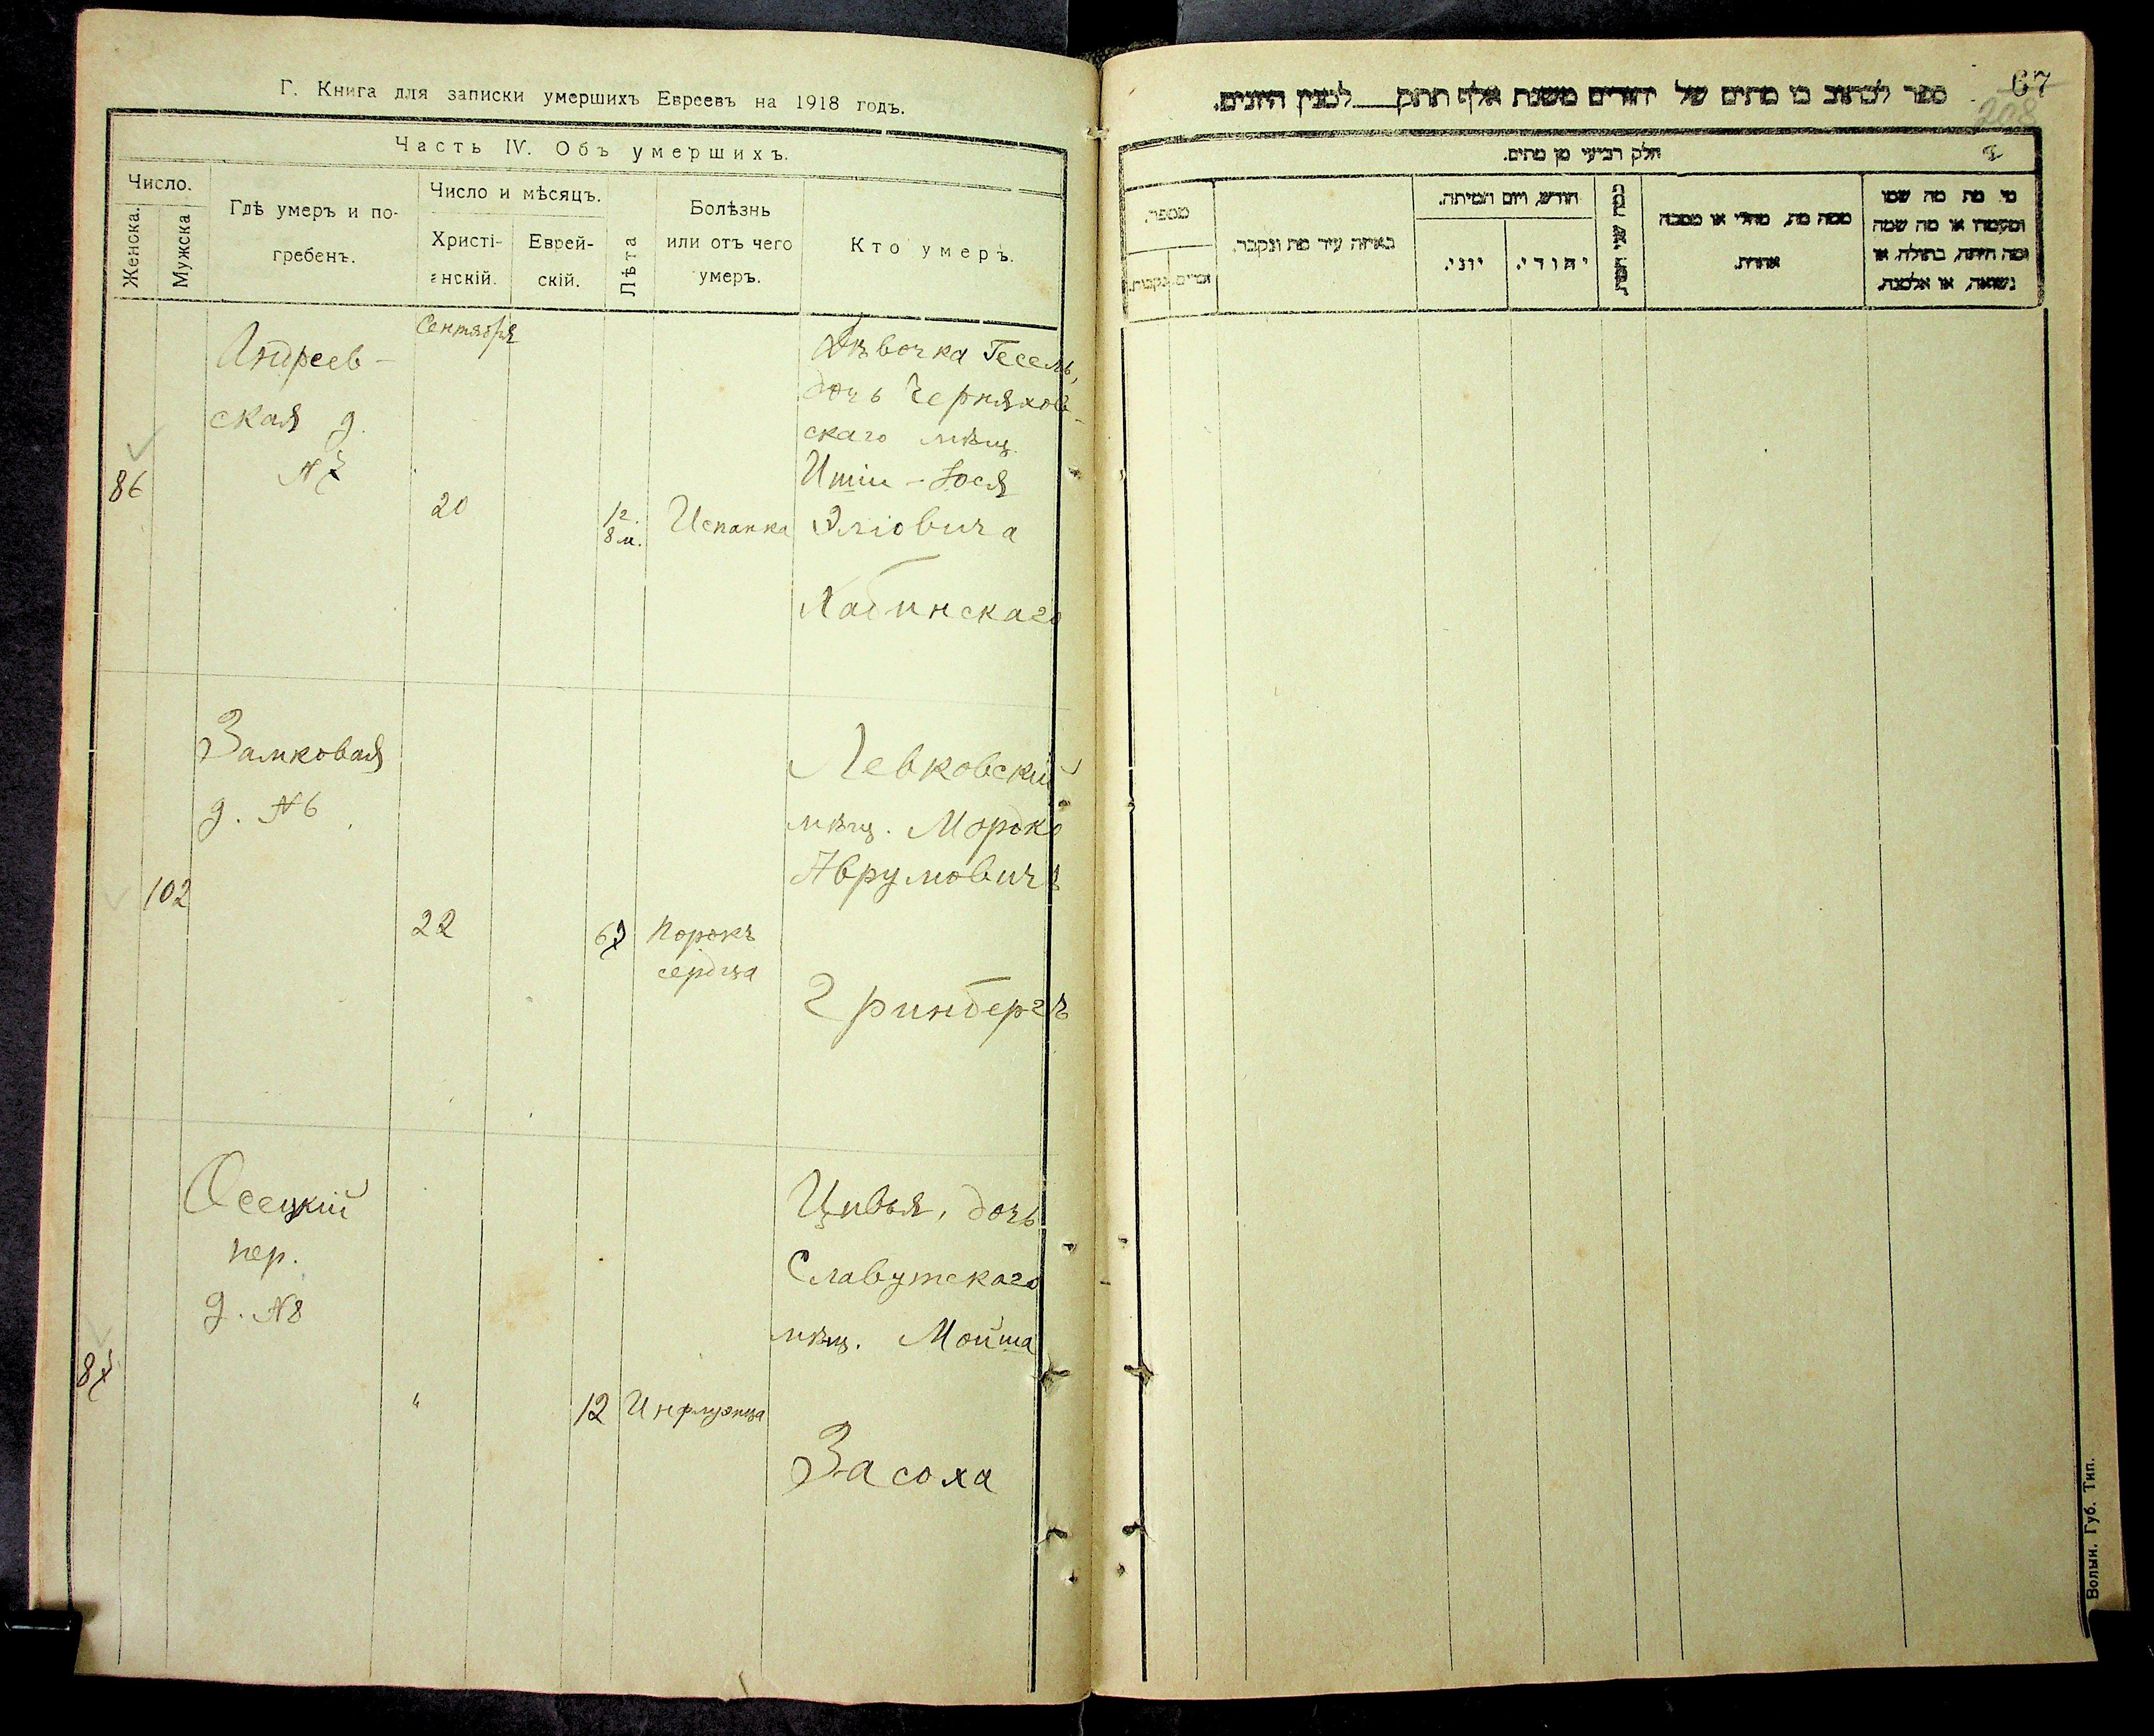 Г. Книга для записки умершихъ Евреевъ на 1918 годъ.
Часть IV. Объ умершихъ.
Число.
Женска.
Мужска
Гдѣ умеръ и по-
гребенъ.
Число и мѣсяцъ.
Христі-
анскій.
Еврей-
скій.
Лѣта
Болѣзнь
или отъ чего
умеръ.
Кто умеръ.
86
Андреев-
ская д.
№ 7
Сентября
20
1 г.
8 м.
Испанка
Дѣвочка Гесель,
дочь Черняхов-
скаго мѣщ.
Ицка-Іося
Эліовича
Лабинскаго
102
Замковая
д. № 6
22
67
Порокъ
сердца
Левковскій
мѣщ. Мордко
Аврумовичъ
Гринбергъ
87
Осецкій
пер.
д. № 8
"
12
Инфлуэнца
Цивья, дочь
Славутскаго
мѣщ. Мойша
Засоха
67
208
ספר לכתוב בו מתים של יהודים משנת אלף תתק___למנין היונים.
חלק רביעי מן מתים.
מספר.
זכרים
נקבות.
באיזה עיר מת ונקבר.
חודש, ויום המיתה.
יוני.
יהודי.
ממה מת, מחלי או מסבה
אחרת.
מי מת מה שמו
ומעמדו או מה שמה
ומה היתה, בתולה, או
נשואה, או אלמנה.
Волын. Губ. Тип.